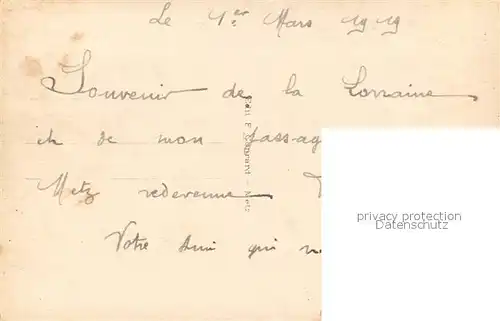 Le 1er Mars 1919
Souvenir de la Lorraine
et de mon passag
Metz redevenue
Votre Ami qui
Edit. F. - Metz
privacy protection
Datenschutz